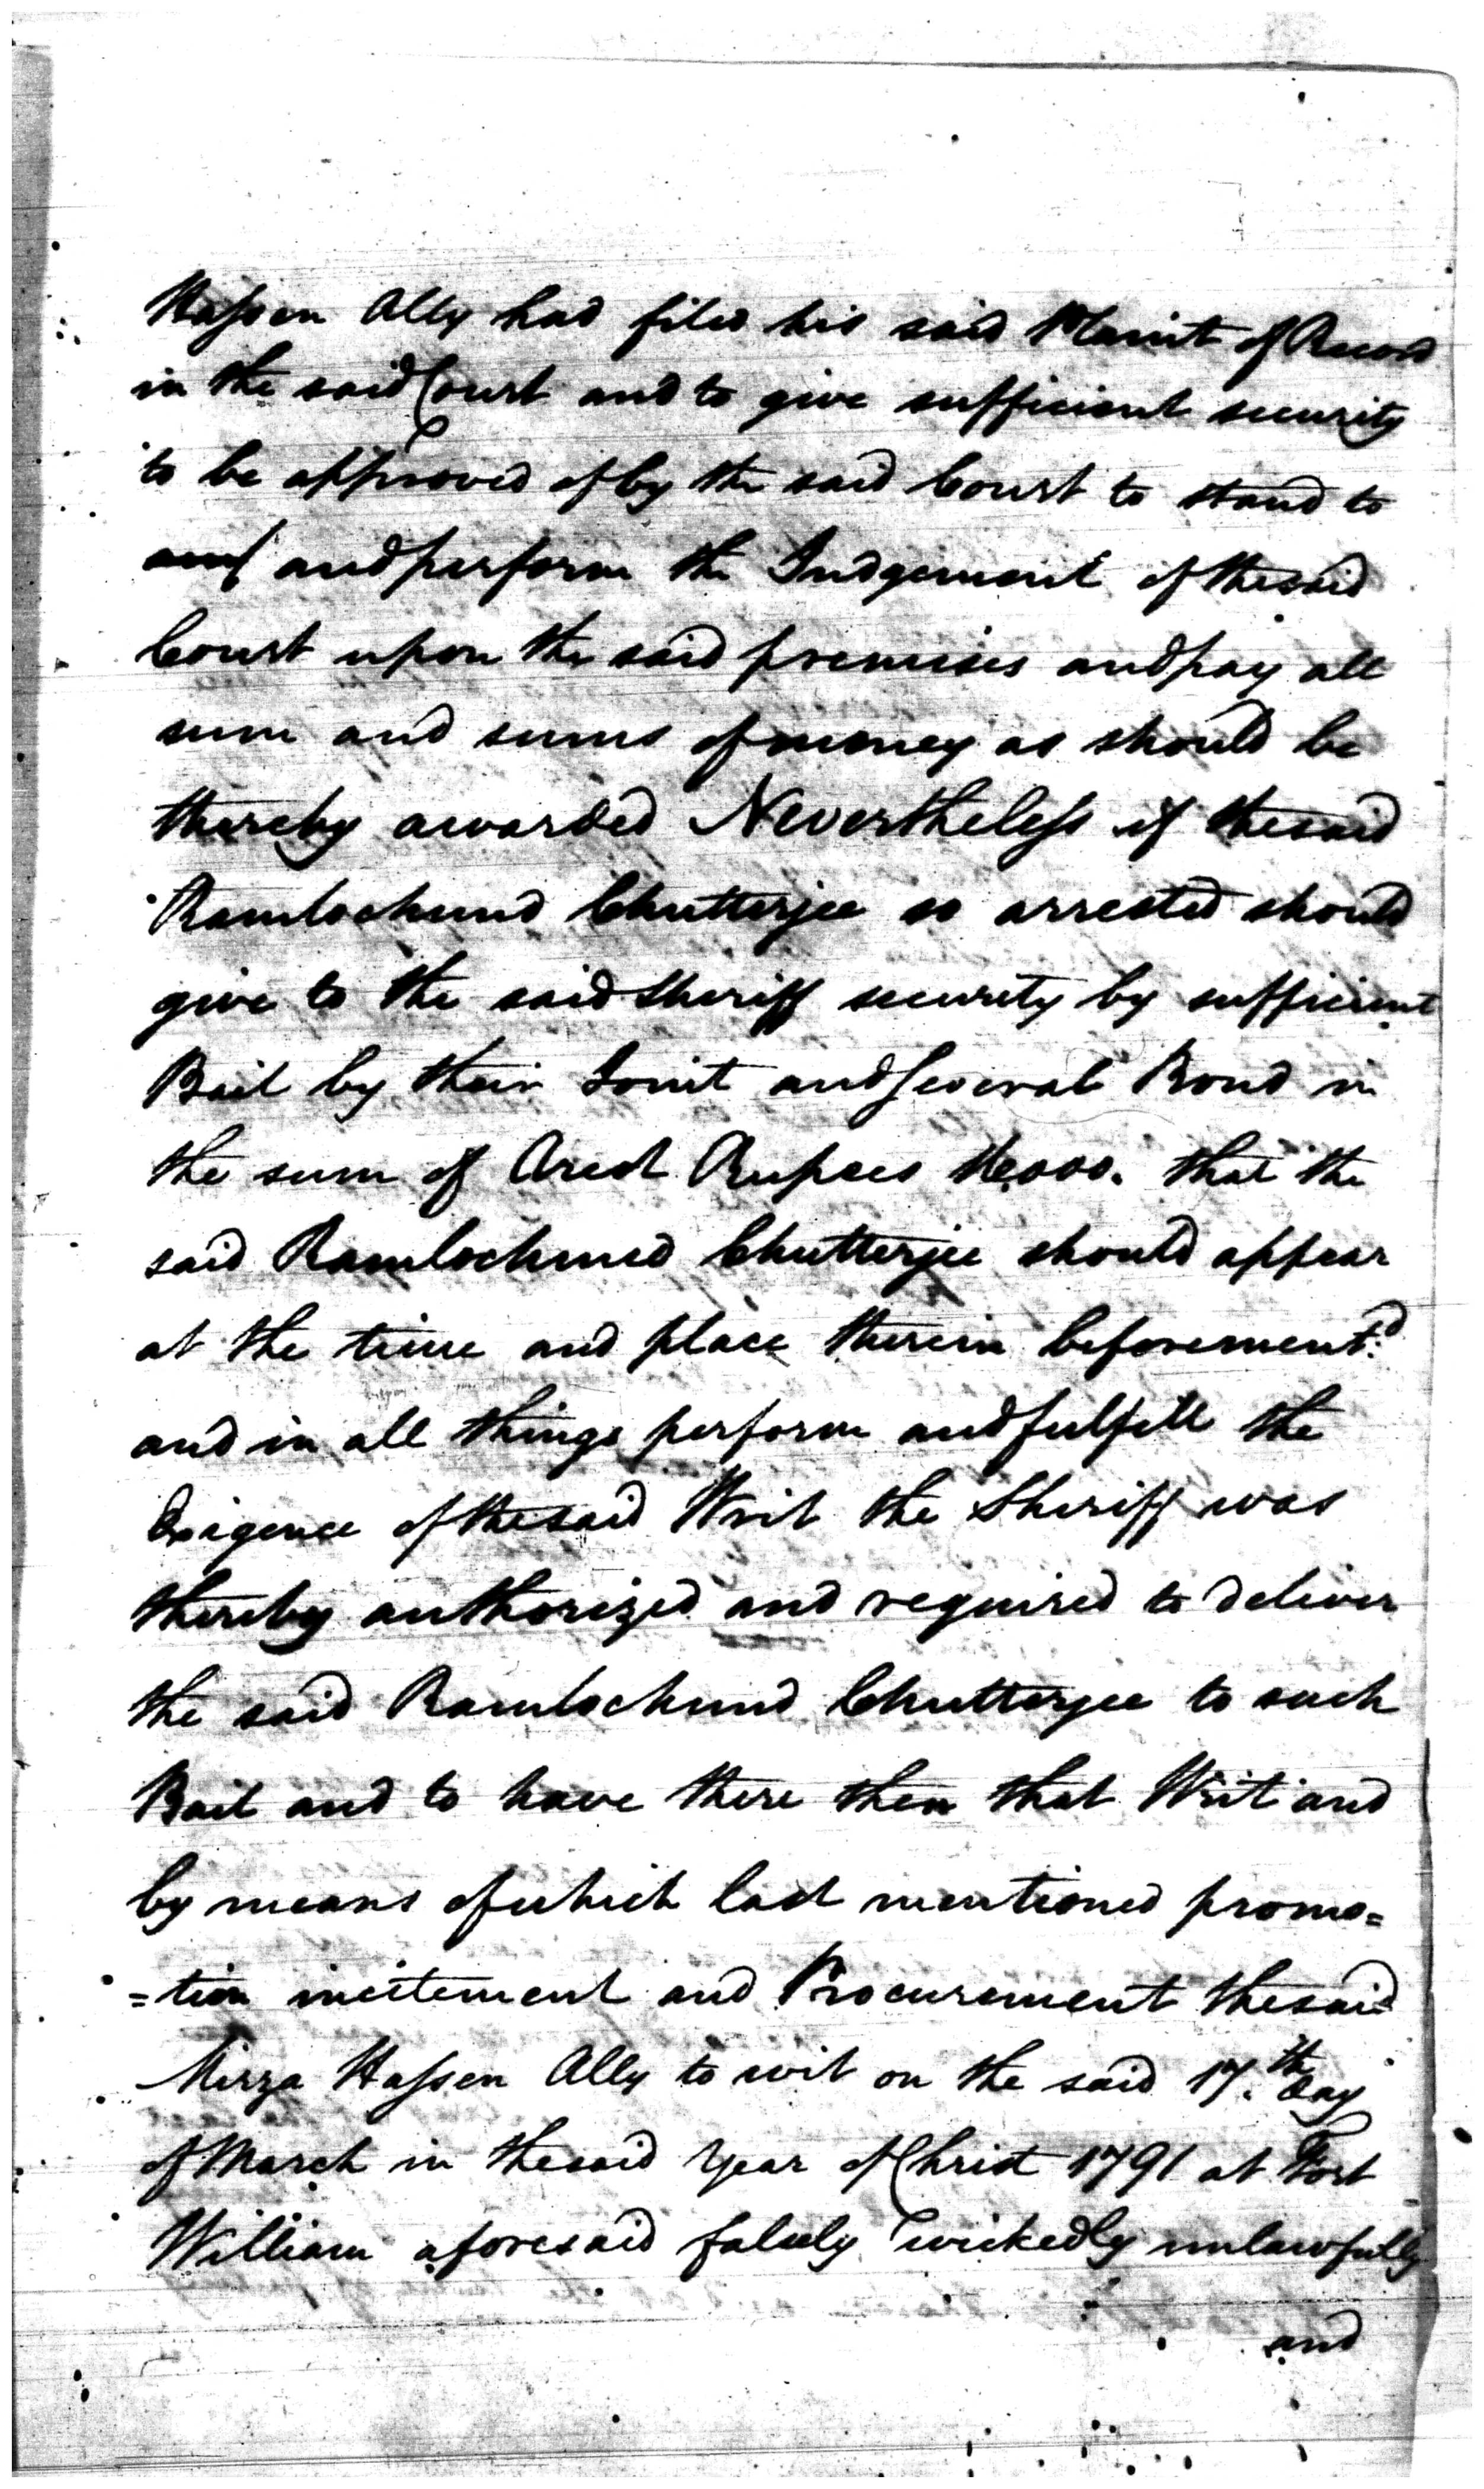 Hassen Ally had filed his said Plaint of Record
in the said Court and to give sufficient security
to be approved of by the said Court to stand to
and perform the Judgement of the said
Court upon the said premises and pay all
sum and sums of money as should be
thereby awarded Nevertheless if the said
Ramlochund Chutterjee so arrested should
give to the said Sheriff security by sufficient
Bail by their Joint and Several Bond in
the sum of Arcot Rupees that the
said Ramlochund Chutterjee should appear
at the time and place therein beforement:d
and in all things perform and fulfill the
Exigence of the said Writ the Sheriff was
thereby authorized and required to deliver
the said Ramlochund Chutterjee to such
Bail and to have there then that Writ and
by means of which last mentioned promo=
=tion incitement and Procurement the said
Mirza Hassen Ally to wit on the said 17.th Day
of March in the said Year of Christ 1791 at Fort
William aforesaid falsely wickedly unlawfully
and